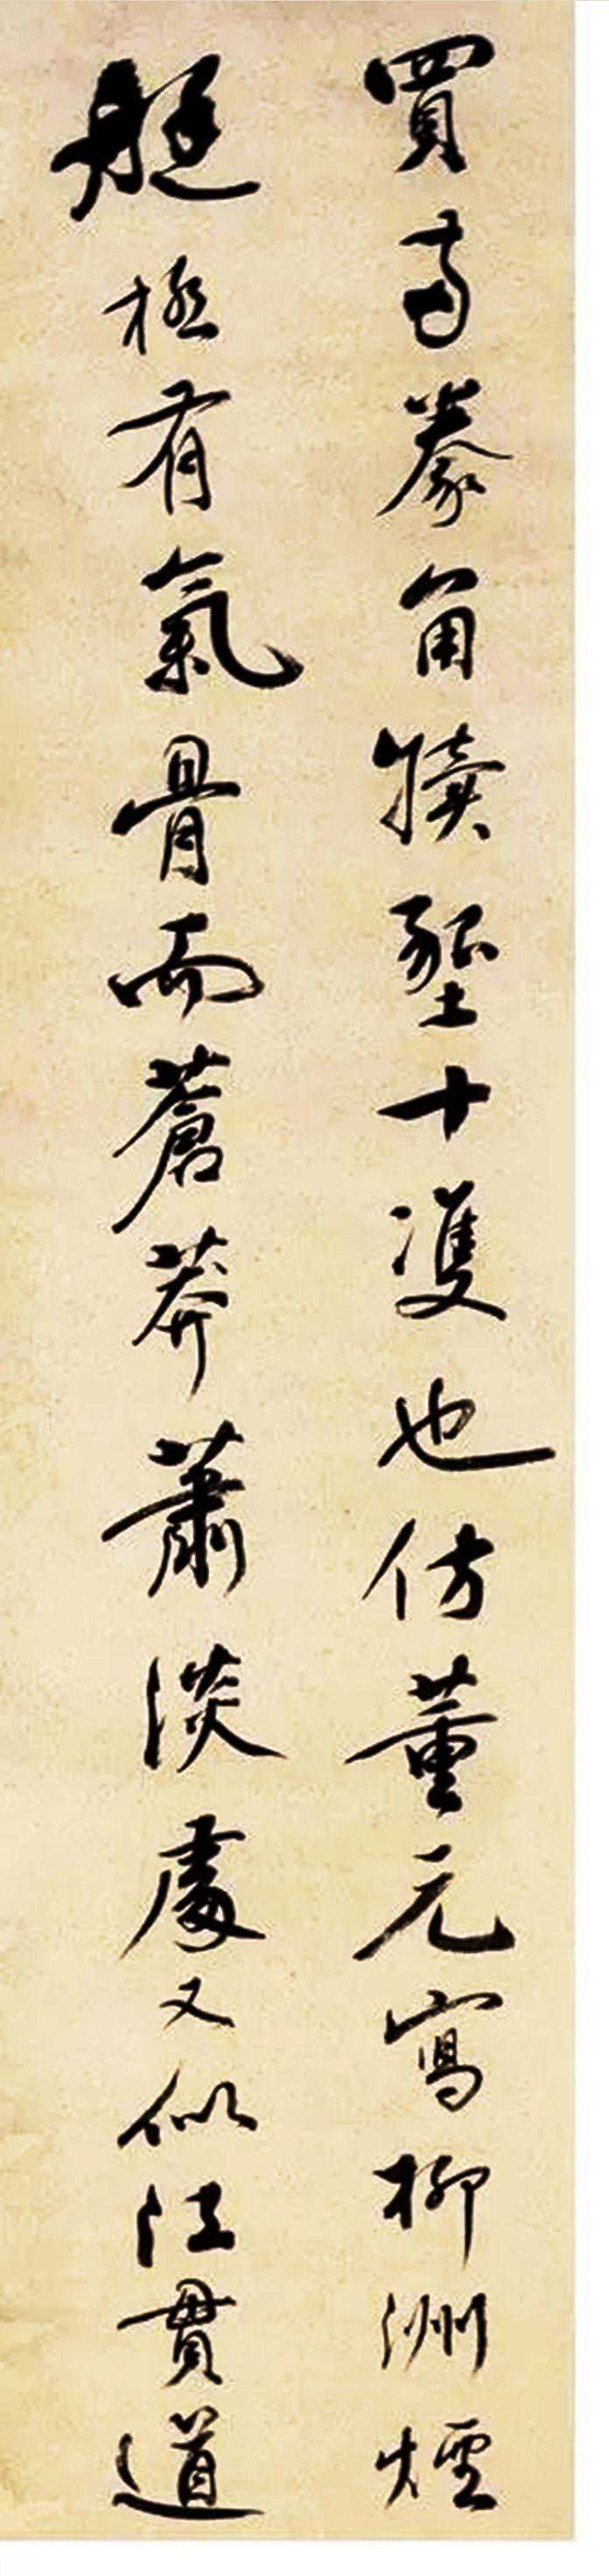 買兩豢角犢墾十雙也仿董元寫柳洲煙
艇極有氣骨而蒼莽蕭淡處又似江貫道